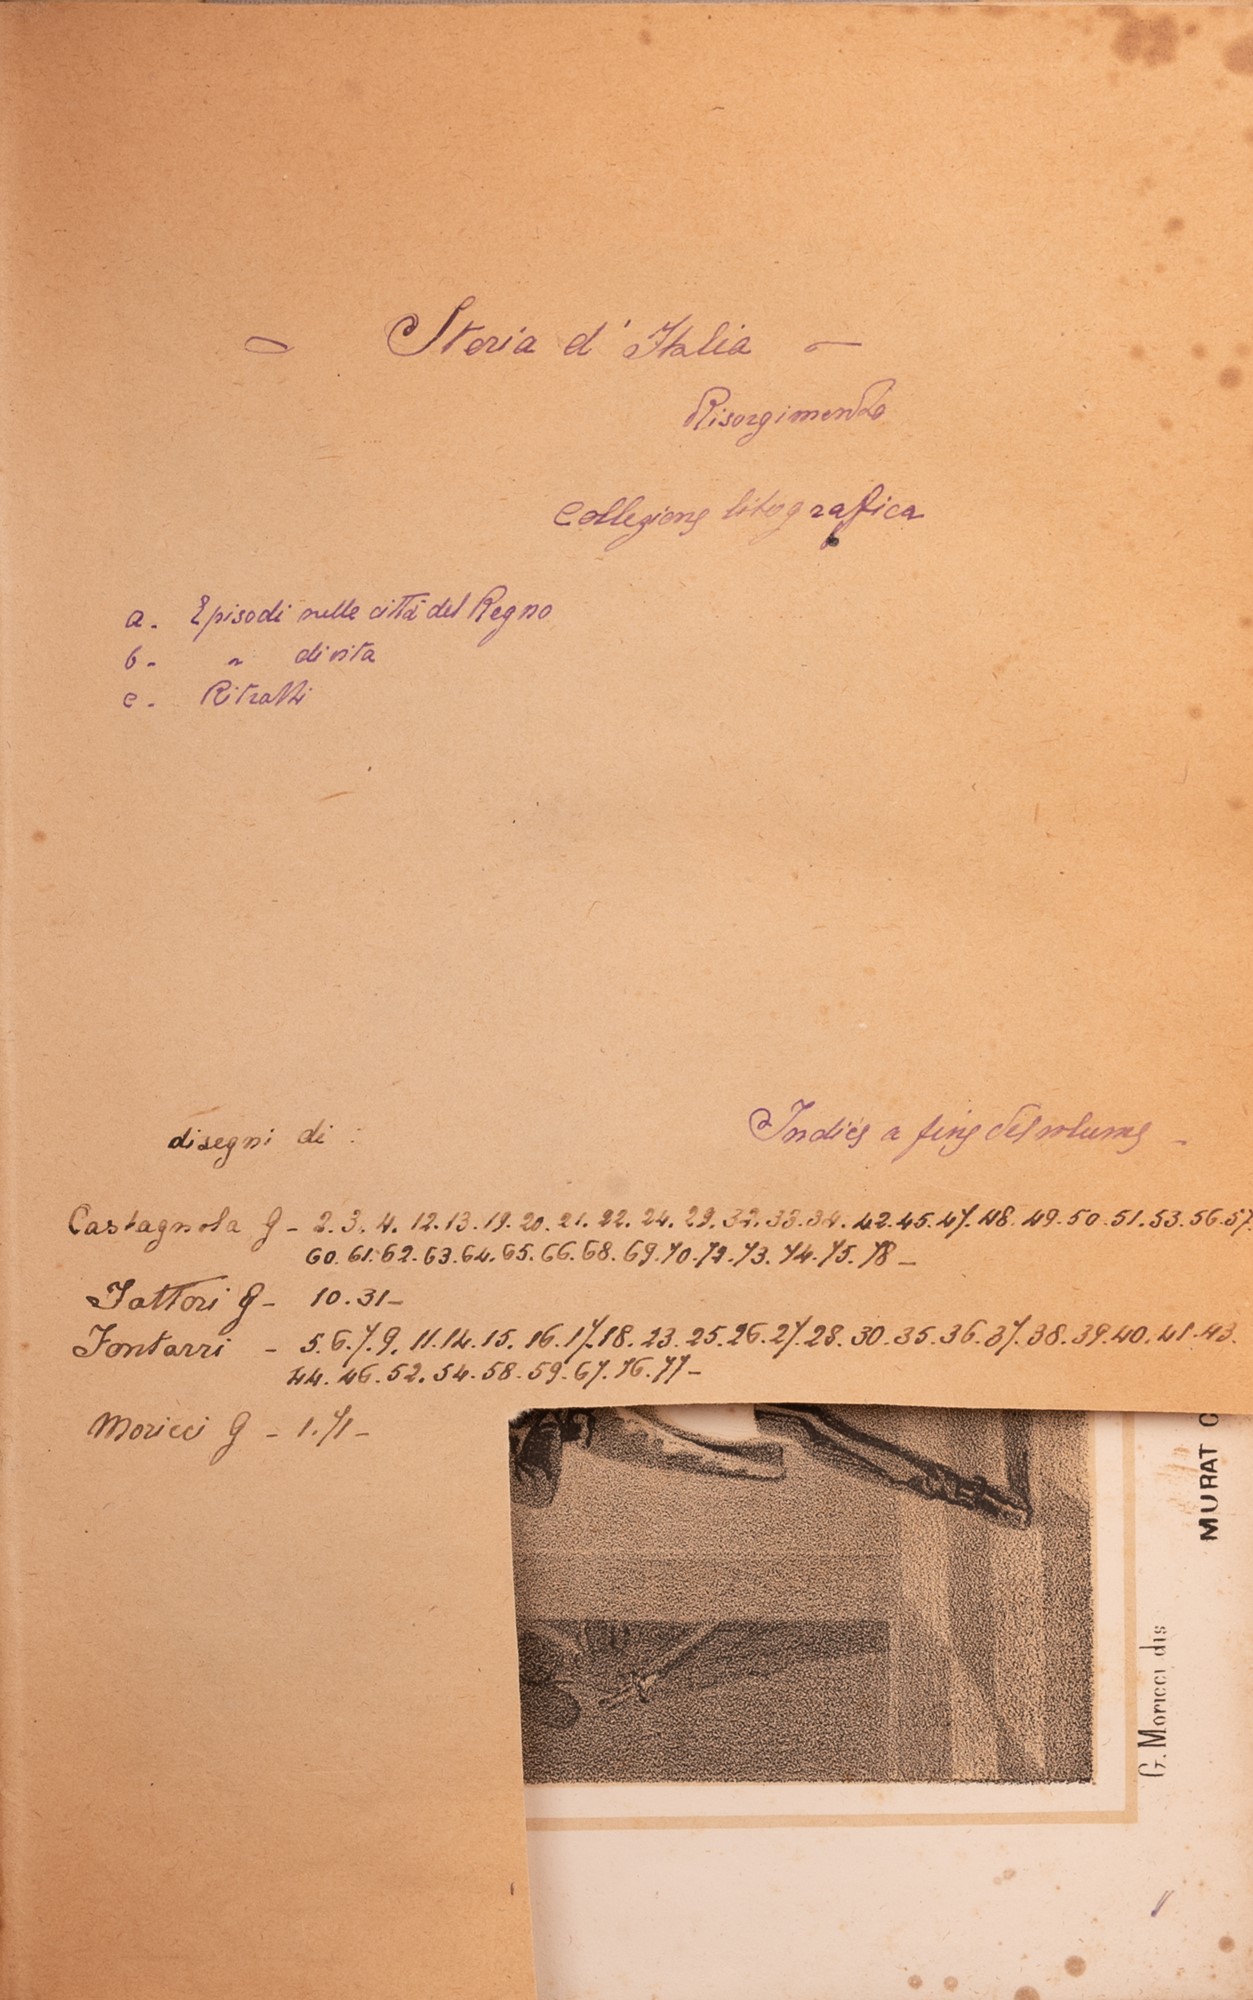 Storia d'Italia
Risorgimento
Collezione litografica
a. Episodi nelle città del Regno
b. " di vita
c. Ritratti
disegni di :
Indici a fine del volume -
Castagnola G - 2. 3. 4. 12. 13. 19. 20. 21. 22. 24. 29. 32. 33. 34. 42. 45. 47. 48. 49. 50. 51. 53. 56. 57.
60. 61. 62. 63. 64. 65. 66. 68. 69. 70. 72. 73. 74. 75. 78 -
Fattori G - 10. 31 -
Fontanri - 5. 6. 7. 9. 11. 14. 15. 16. 17. 18. 23. 25. 26. 27. 28. 30. 35. 36. 37. 38. 39. 40. 41. 43.
44. 46. 52. 54. 58. 59. 67. 76. 77 -
Moricci G - 1. 71 -
MURAT
G. Moricci dis